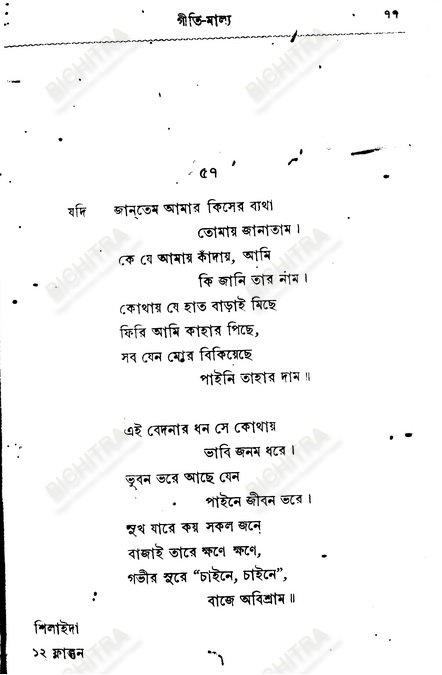 গীতি-মাল্য ৭৭
৫৭
যদি জান্‌তেম আমার কিসের ব্যথা
তোমায় জানাতাম।
কে যে আমায় কাঁদায়, আমি
কি জানি তার নাম।
কোথায় যে হাত বাড়াই মিছে
ফিরি আমি কাহার পিছে,
সব যেন মোর বিকিয়েছে
পাইনি তাহার দাম॥
এই বেদনার ধন সে কোথায়
ভাবি জনম ধরে।
ভুবন ভরে আছে যেন
পাইনে জীবন ভরে।
সুখ যারে কয় সকল জনে
বাজাই তারে ক্ষণে ক্ষণে,
গভীর সুরে “চাইনে, চাইনে”,
বাজে অবিশ্রাম॥
শিলাইদা
১২ ফাল্গুন
BICHITRA
BICHITRA
BICHITRA
BICHITRA
BICHITRA
BICHITRA
BICHITRA
BICHITRA